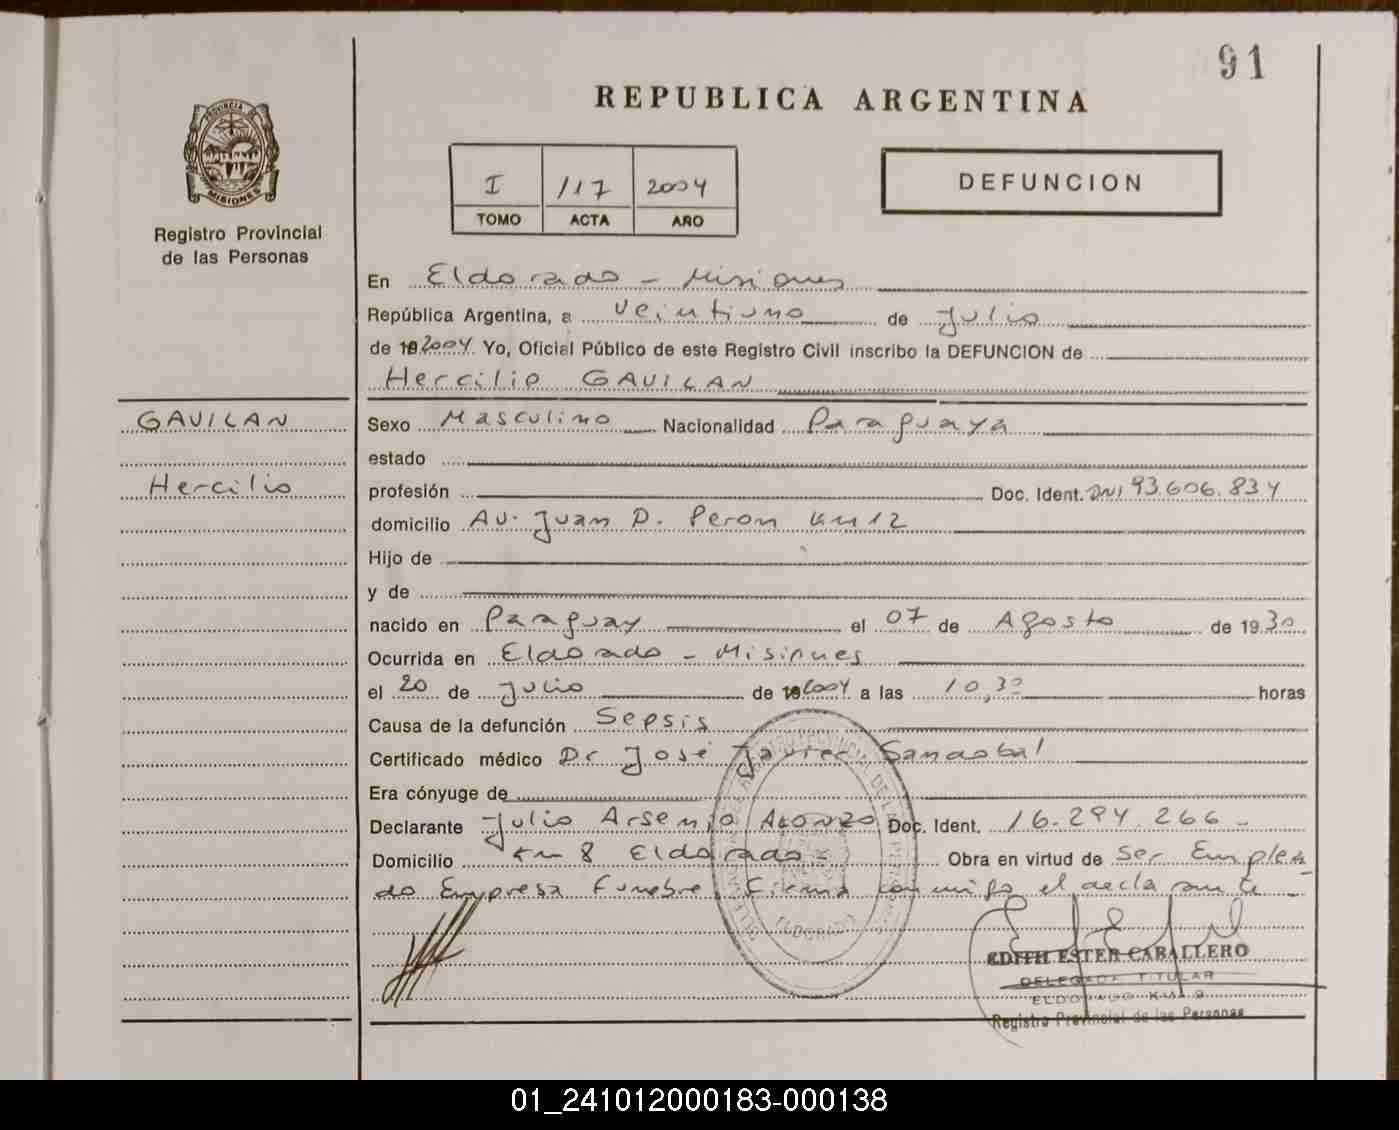 91
REPUBLICA ARGENTINA
PROVINCIA
MISIONES
Registro Provincial
de las Personas
I 117 2004
TOMO ACTA AÑO
DEFUNCION
En Eldorado - Misiones
República Argentina, a veintiuno de Julio
de 19 2004 Yo, Oficial Público de este Registro Civil inscribo la DEFUNCION de
Hercilio GAVILAN
GAVILAN
Hercilio
Sexo Masculino Nacionalidad Paraguaya
estado
profesión Doc. Ident. DNI 93.606.834
domicilio Av. Juan D. Peron Km 12
Hijo de
y de
nacido en Paraguay el 07 de Agosto de 1930
Ocurrida en Eldorado - Misiones
el 20 de Julio de 19 2004 a las 10,30 horas
Causa de la defunción Sepsis
Certificado médico Dr José Javier Sandobal
Era cónyuge de
Declarante Julio Arsenio ALONZO Doc. Ident. 16.294.266 -
Domicilio Km 8 Eldorado - Obra en virtud de ser Emplea-
do Empresa Funebre. Firma conmigo el declarante -
ELDORADO
EDITH ESTER CABALLERO
DELEGADA TITULAR
ELDORADO KM. 9
Registro Provincial de las Personas
01_241012000183-000138